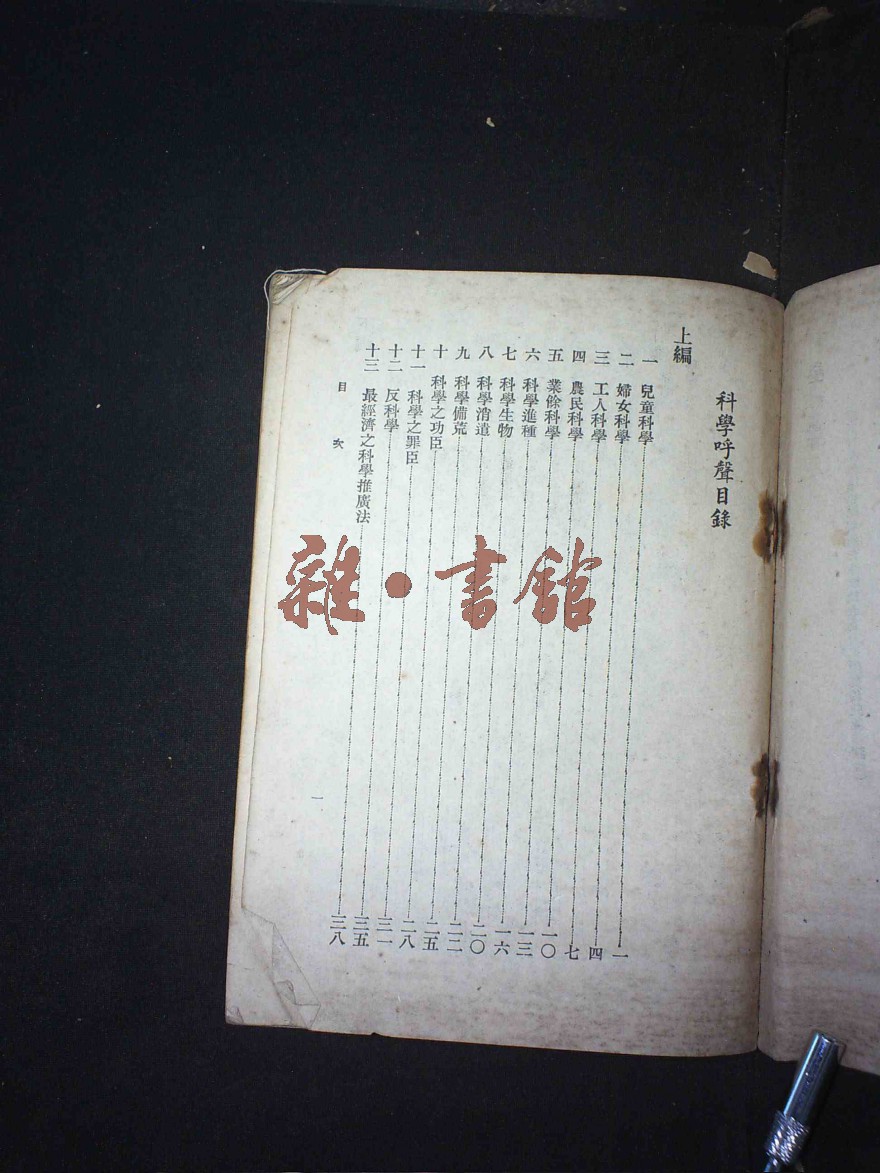 科學呼聲目錄
上編
一 兒童科學 一
二 婦女科學 四
三 工人科學 七
四 農民科學 一〇
五 業餘科學 一三
六 科學進種 一六
七 科學生物 二〇
八 科學消遣 二二
九 科學備荒 二五
十 科學之功臣 二八
十一 科學之罪臣 三一
十二 反科學 三五
十三 最經濟之科學推廣法 三八
目次
一
雜·書館